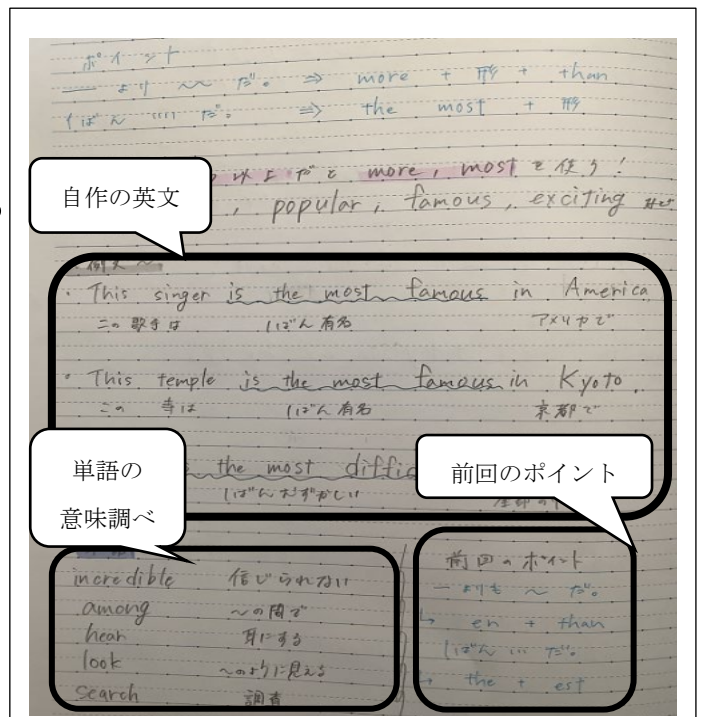 ポイント
― より ～～ だ。 ⇒ more + 形 + than
いちばん …… だ。 ⇒ the most + 形
以上だと more, most を使う!
, popular, famous, exciting など
自作の英文
例文～
・This singer is the most famous in America
この歌手は いちばん有名 アメリカで
・This temple is the most famous in Kyoto.
この 寺は いちばん有名 京都で
the most diffic
いちばんむずかしい
単語の
意味調べ
前回のポイント
incredible 信じられない
among ～の間で
hear 耳にする
look ～のように見える
search 調査
前回のポイント
― よりも ～ だ。
↳ er + than
いちばん … だ。
↳ the + est